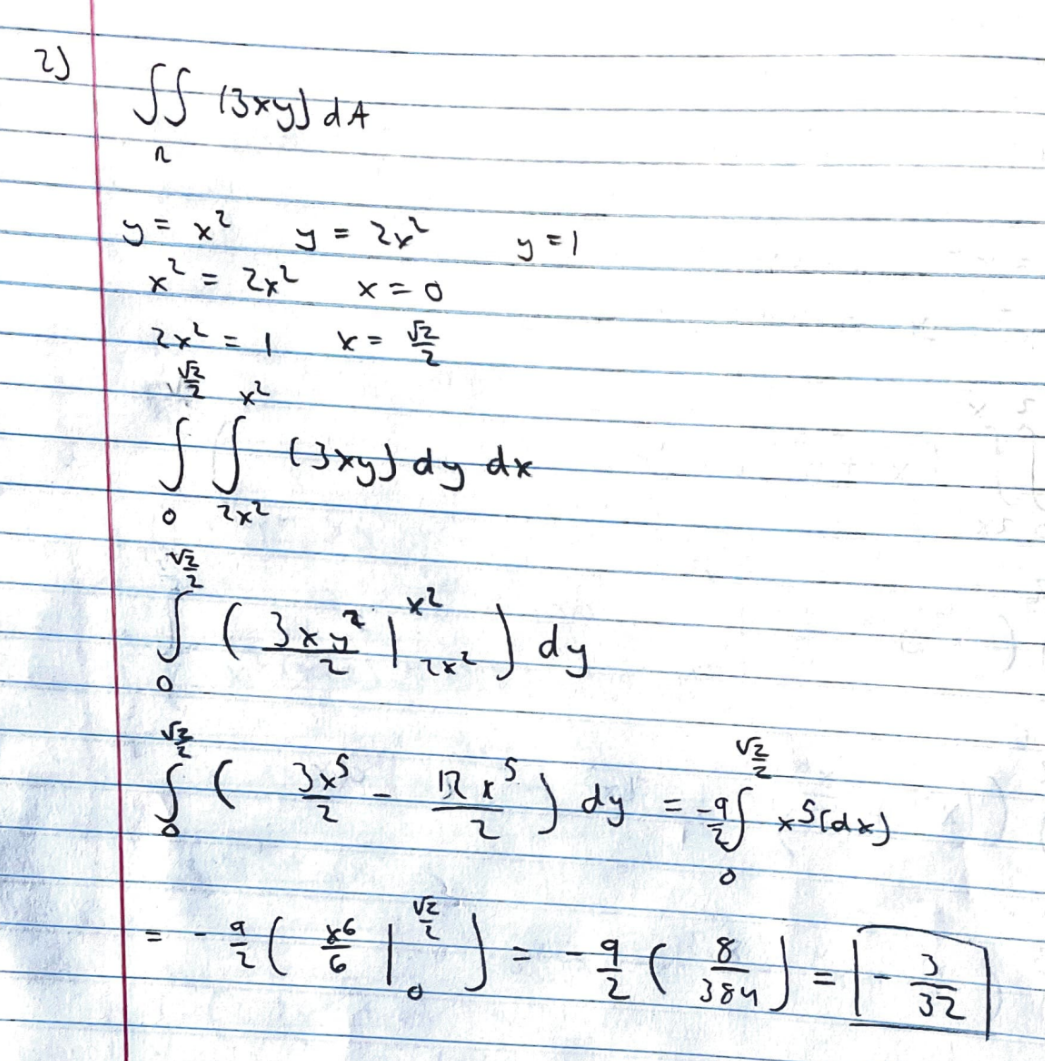 2)
∫∫_R (3xy) dA
y = x² y = 2x² y = 1
x² = 2x² x = 0
2x² = 1 x = √2/2
∫_0^{√2/2} ∫_{2x²}^{x²} (3xy) dy dx
∫_0^{√2/2} ( 3xy²/2 |_{2x²}^{x²} ) dy
∫_0^{√2/2} ( 3x⁵/2 - 12x⁵/2 ) dy = -9/2 ∫_0^{√2/2} x⁵(dx)
= -9/2 ( x⁶/6 |_0^{√2/2} ) = -9/2 ( 8/384 ) = - 3/32